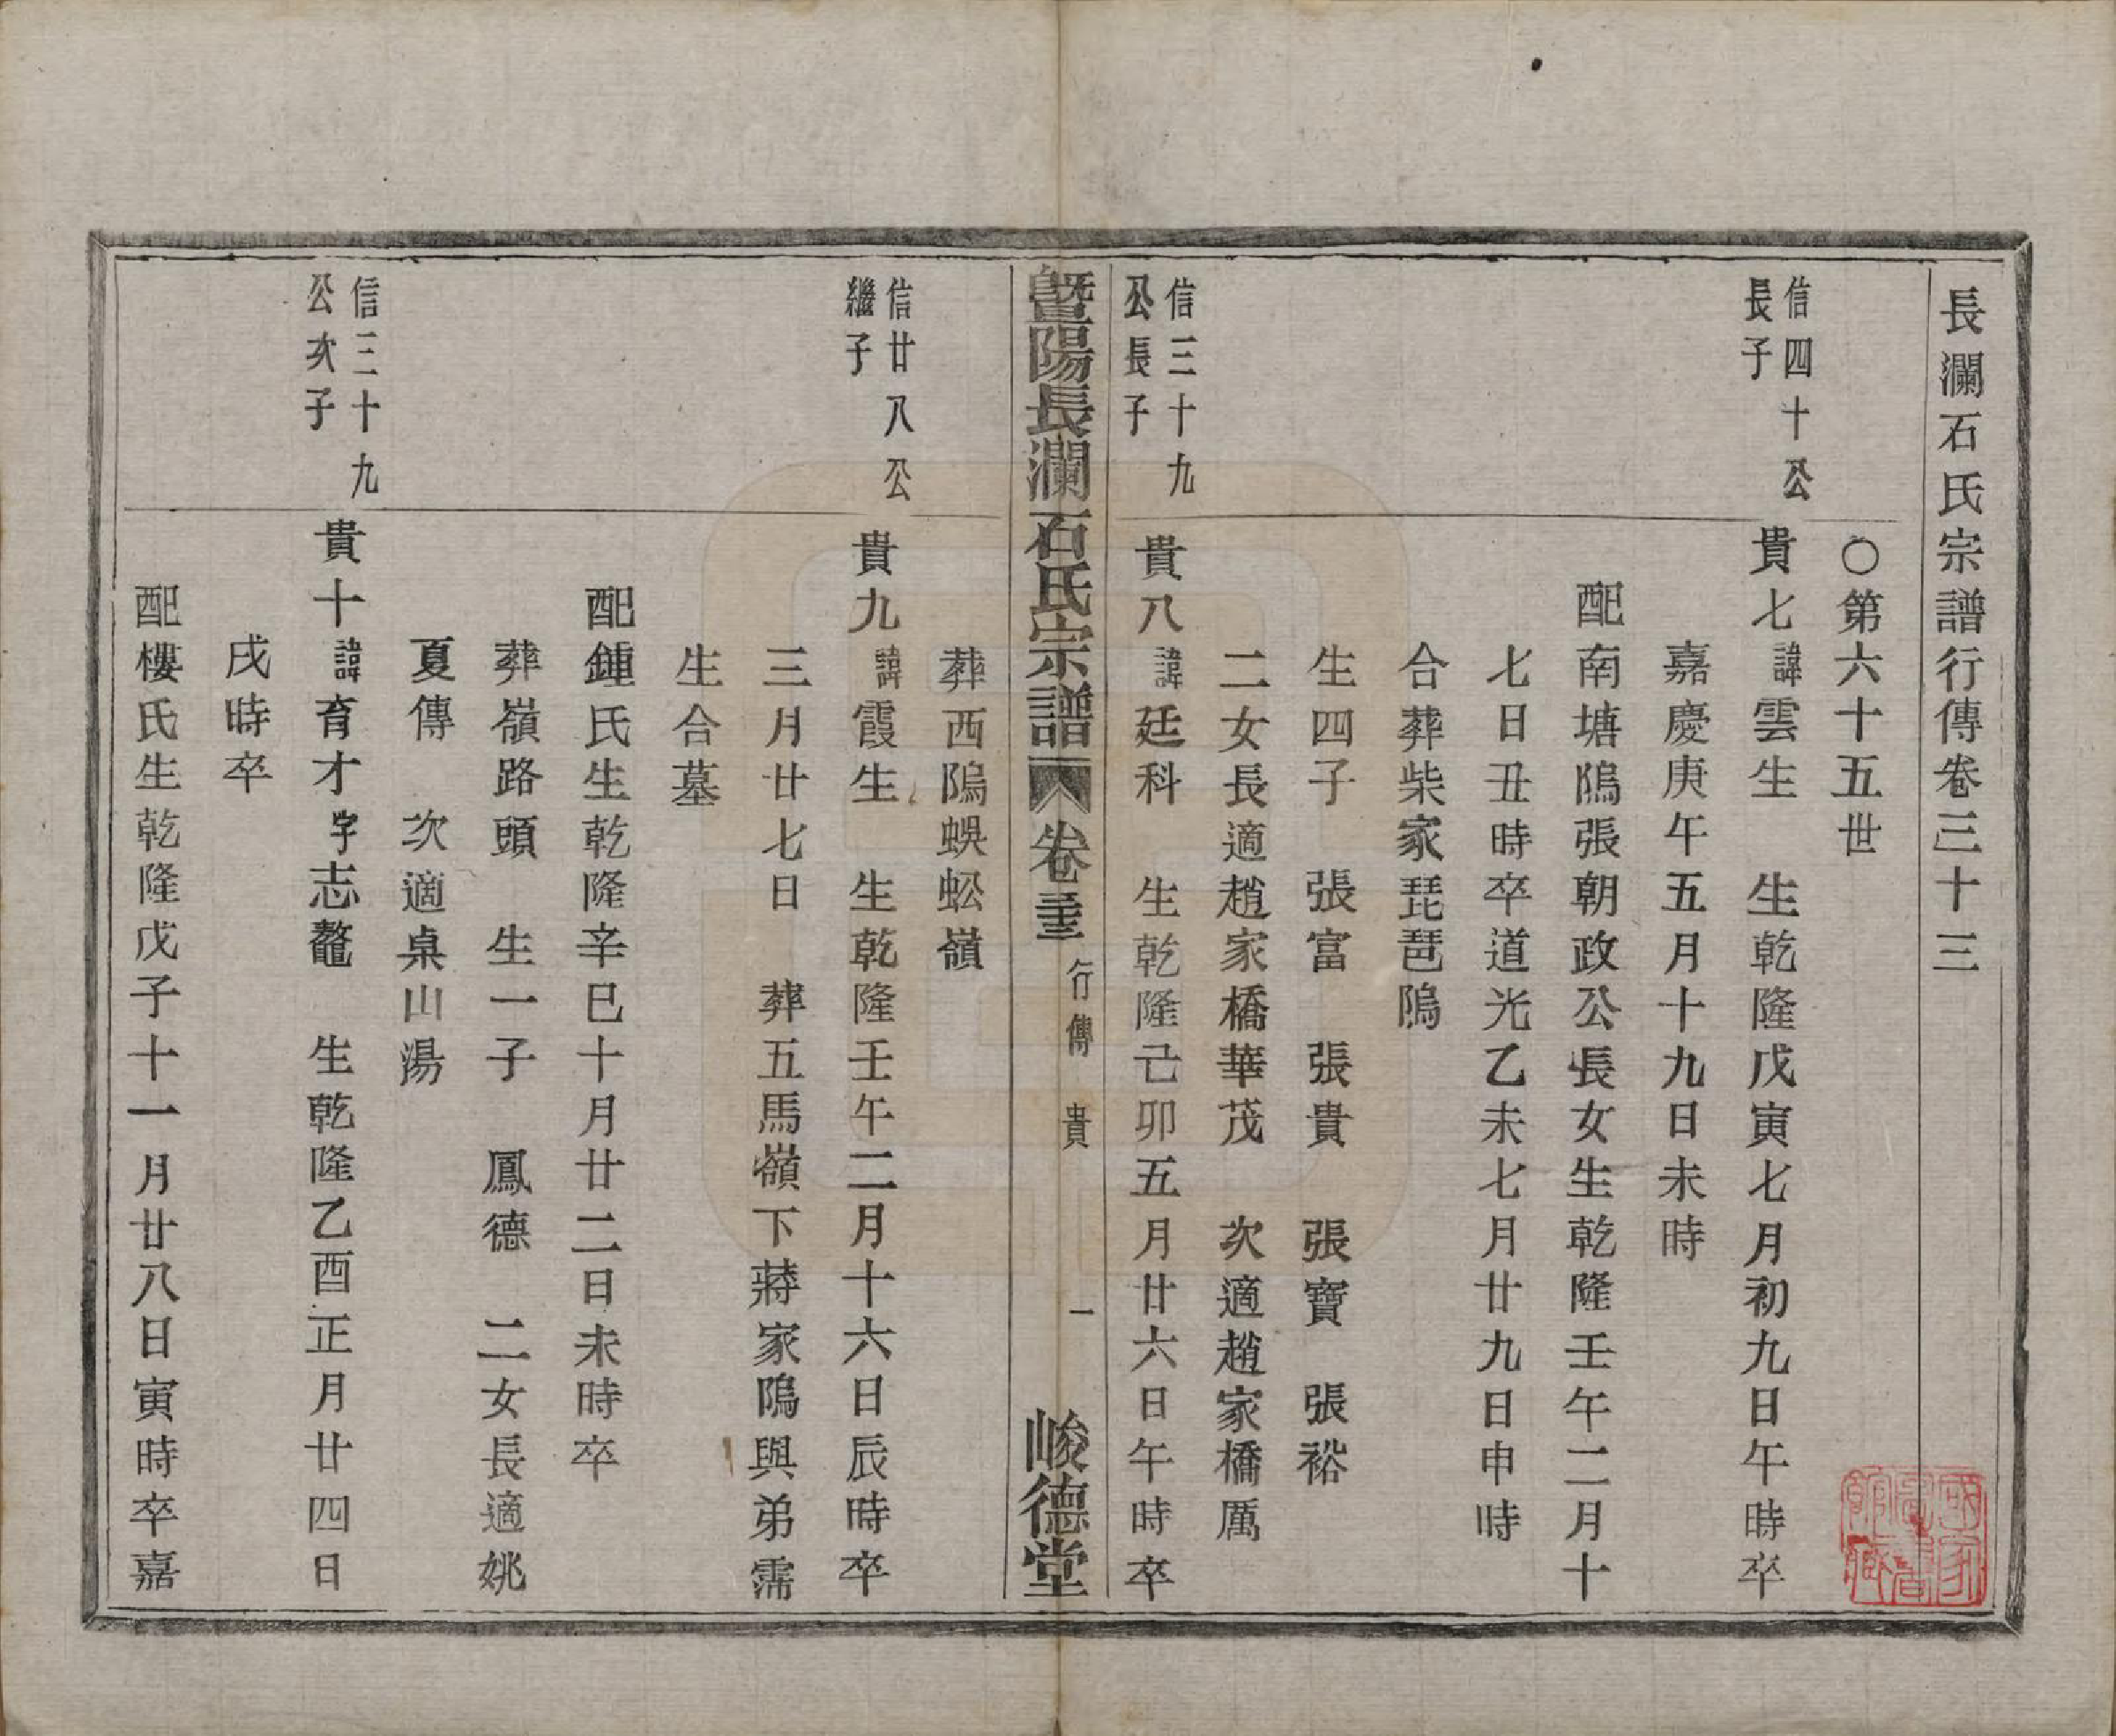 長瀾石氏宗譜行傳卷三十三
〇第六十五世
信四十公
長子
貴七諱雲生　生乾隆戊寅七月初九日午時卒
嘉慶庚午五月十九日未時
配南塘隖張朝政公長女生乾隆壬午二月十
七日丑時卒道光乙未七月廿九日申時
合葬柴家琵琶隖
生四子　張富　張貴　張寶　張裕
二女長適趙家橋華茂　次適趙家橋厲
信三十九
公長子
貴八諱廷科　生乾隆己卯五月廿六日午時卒
暨陽長瀾石氏宗譜　卷三十三　行傳　貴　一　峻德堂
葬西隖蜈蚣嶺
信廿八公
繼子
貴九諱霞生　生乾隆壬午二月十六日辰時卒
三月廿七日　葬五馬嶺下蔣家隖與弟霈
生合墓
配鍾氏生乾隆辛巳十月廿二日未時卒
葬嶺路頭　生一子　鳳德　二女長適姚
夏傳　次適桌山湯
信三十九
公次子
貴十諱育才字志鼇　生乾隆乙酉正月廿四日
戌時卒
配樓氏生乾隆戊子十一月廿八日寅時卒嘉